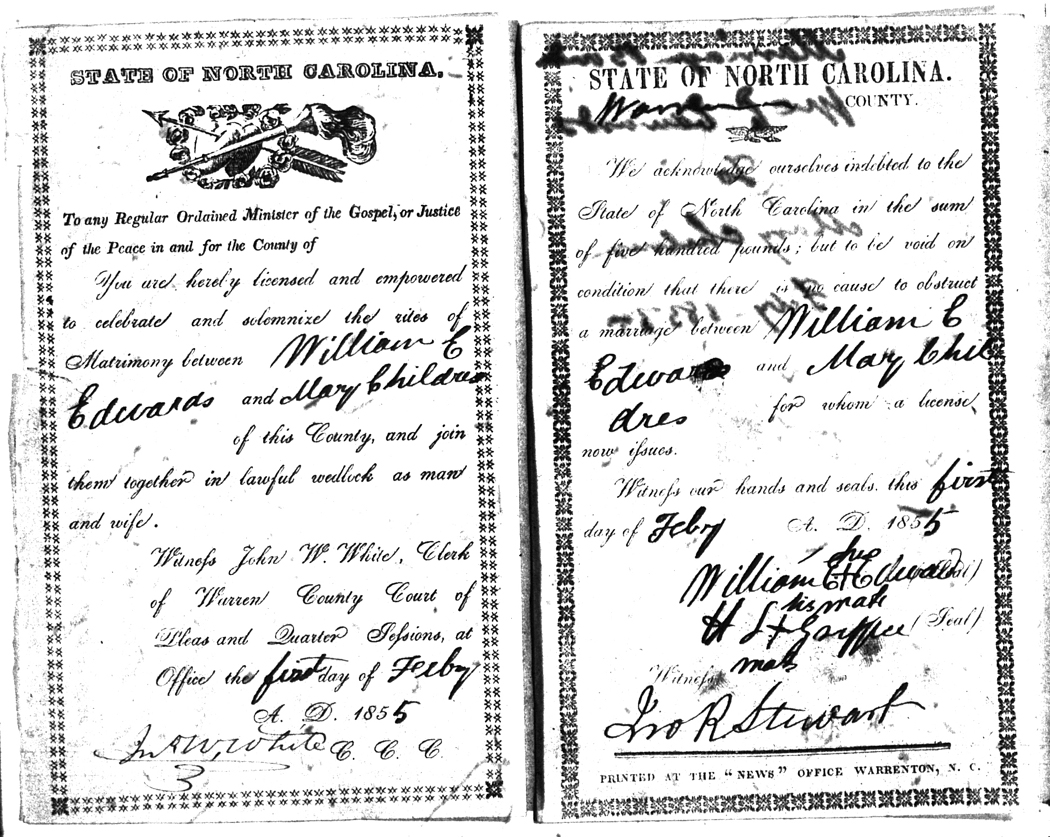 STATE OF NORTH CAROLINA.
To any Regular Ordained Minister of the Gospel, or Justice
of the Peace in and for the County of
You are hereby licensed and empowered
to celebrate and solemnize the rites of
Matrimony between William E
Edwards and Mary Childres
of this County, and join
them together in lawful wedlock as man
and wife.
Witness John W. White, Clerk
of Warren County Court of
Pleas and Quarter Sessions, at
Office the first day of Feby
A. D. 1855
Jno W. White C. C. C.
3
STATE OF NORTH CAROLINA.
Warren COUNTY.
We acknowledge ourselves indebted to the
State of North Carolina in the sum
of five hundred pounds; but to be void on
condition that there is no cause to obstruct
a marriage between William E
Edwards and Mary Chil
dres for whom a license
now issues.
Witness our hands and seals. this first
day of Feby A. D. 1855
his
William E + Edwards (Seal)
his mark
H S + (Seal)
mark
Witness
Jno R Stewart
PRINTED AT THE "NEWS" OFFICE WARRENTON, N. C.